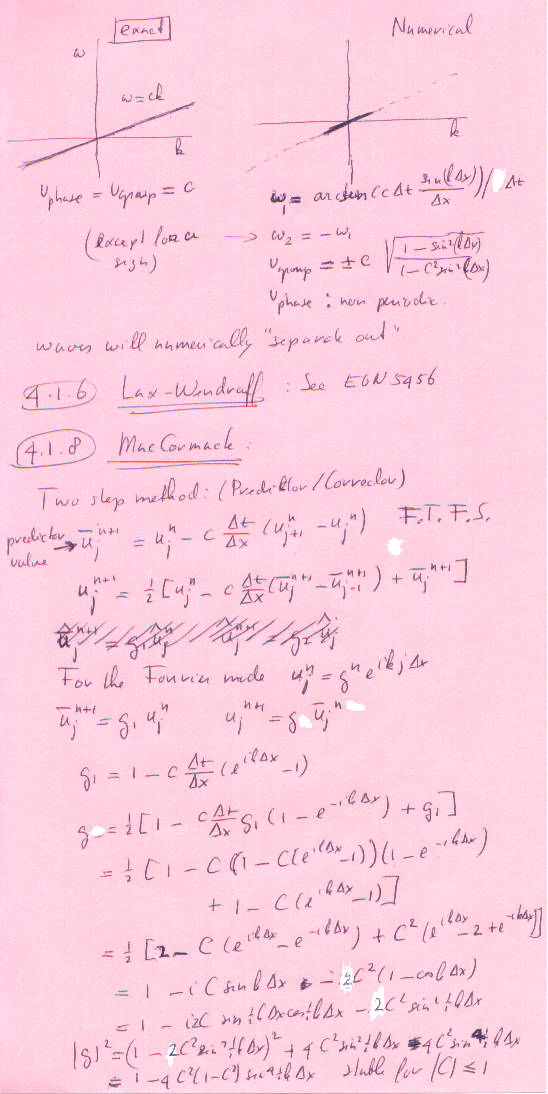 exact Numerical
ω
ω = ck
k k
v phase = v group = c ω₁ = arcsin(cΔt sin(kΔx)/Δx)/Δt
(except for a sign) → ω₂ = -ω₁
v group = ± c √((1 - sin²(kΔx))/(1 - C² sin²(kΔx)))
v phase : non periodic.
waves will numerically "separate out"
4.1.6 Lax-Wendroff : See EGN 5456
4.1.8 MacCormack :
Two step method: (Prediktor/Corrector)
predictor value → ū_j^{n+1} = u_j^n - c Δt/Δx (u_{j+1}^n - u_j^n) F.T. F.S.
u_j^{n+1} = ½ [u_j^n - c Δt/Δx (ū_j^{n+1} - ū_{j-1}^{n+1}) + ū_j^{n+1}]
For the Fourier mode u_j^n = g^n e^{ikjΔx}
ū_j^{n+1} = g₁ u_j^n u_j^{n+1} = g ū_j^n
g₁ = 1 - c Δt/Δx (e^{ikΔx} - 1)
g = ½ [1 - c Δt/Δx g₁ (1 - e^{-ikΔx}) + g₁]
= ½ [1 - C (1 - C(e^{ikΔx} - 1))(1 - e^{-ikΔx})
+ 1 - C(e^{ikΔx} - 1)]
= ½ [2 - C (e^{ikΔx} - e^{-ikΔx}) + C² (e^{ikΔx} - 2 + e^{-ikΔx})]
= 1 - iC sin kΔx - C² (1 - cos kΔx)
= 1 - i2C sin ½kΔx cos ½kΔx - 2C² sin² ½kΔx
|g|² = (1 - 2C² sin² ½kΔx)² + 4C² sin² ½kΔx - 4C² sin⁴ ½kΔx
= 1 - 4C²(1 - C²) sin⁴ ½kΔx stable for |C| ≤ 1